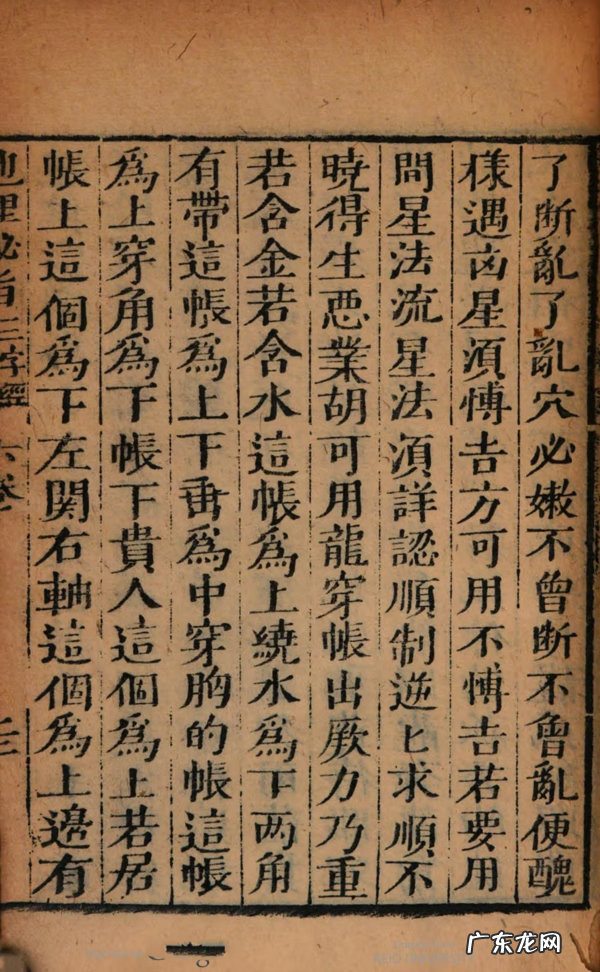 了断亂了亂穴必嫩不曾断不曾亂便醜
樣遇㐫星須愽吉方可用不愽吉若要用
問星法流星法須詳認順制逆匕求順不
曉得生惡業胡可用龍穿帳出厥力乃重
若含金若含水這帳為上繞水為下两角
有帶這帳為上下垂為中穿胸的帳這帳
為上穿角為下帳下貴人這個為上若居
帳上這個為下左関右軸這個為上邊有
地理秘旨三字經 六卷
广东龙网